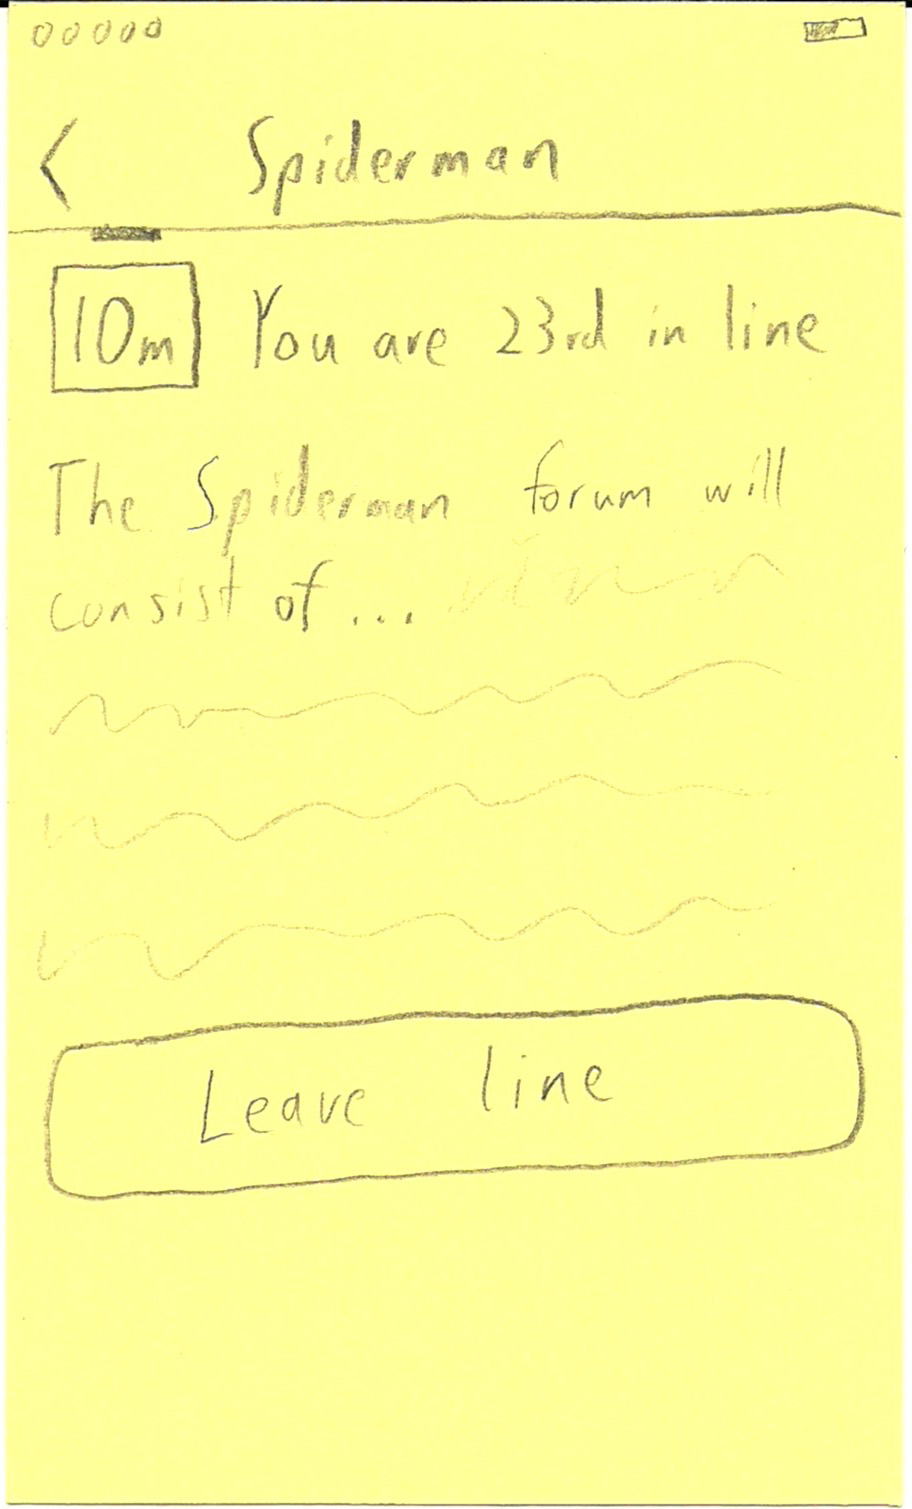 Spiderman
10m You are 23rd in line
The Spiderman forum will
consist of ...
Leave line